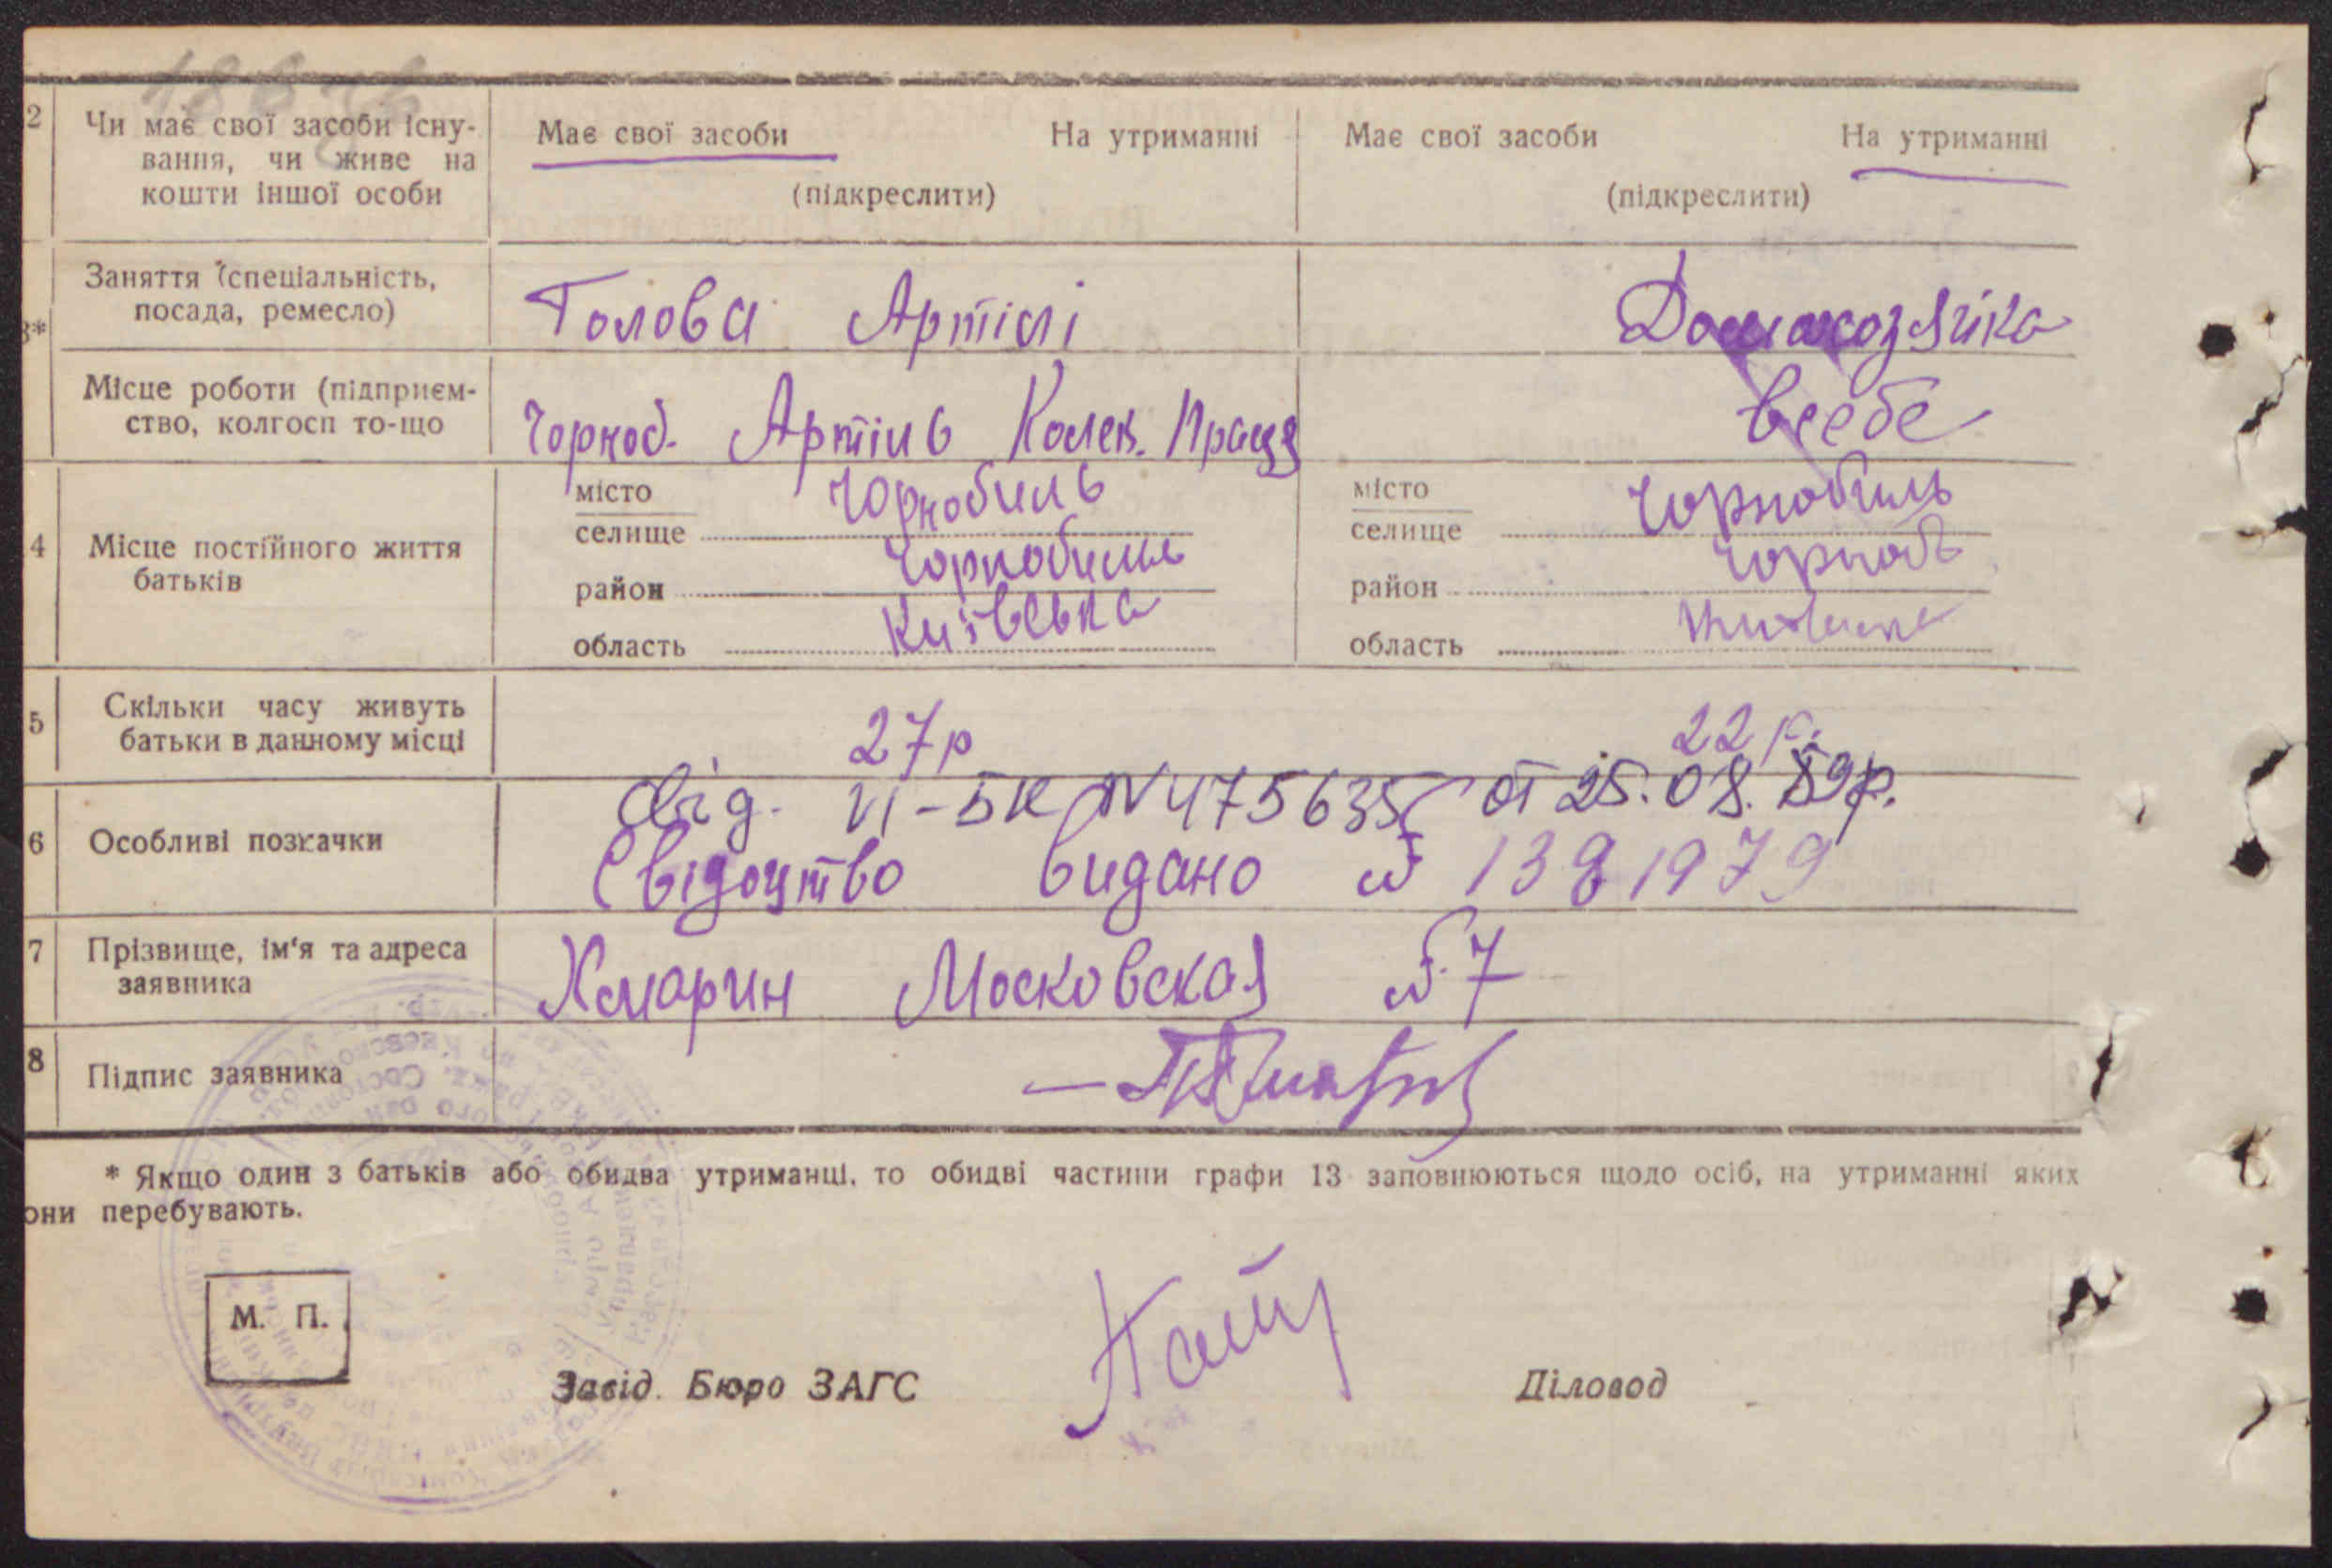 2 Чи має свої засоби існу- Має свої засоби На утриманні Має свої засоби На утриманні
вання, чи живе на
кошти іншої особи (підкреслити) (підкреслити)
Заняття (спеціальність,
посада, ремесло) Голова Артілі Домахозяйка
3*
Місце роботи (підприєм-
ство, колгосп то-що Чорноб. Артіль Колек. Праця в себе
місто Чорнобиль місто Чорнобиль
селище селище
4 Місце постійного життя
батьків район Чорнобиль район Чорноб
область Київська область
5 Скільки часу живуть
батьки в данному місці 27р 22 р.
Свід. VI-БК №475635 от 25.08.89р.
6 Особливі позначки
Свідоцтво видано № 1381979
7 Прізвище, ім‘я та адреса
заявника Хмарин Московская №7
8 Підпис заявника
* Якщо один з батьків або обидва утриманці, то обидві частини графи 13 заповнюються щодо осіб, на утриманні яких
они перебувають.
М. П.
Завід. Бюро ЗАГС Діловод